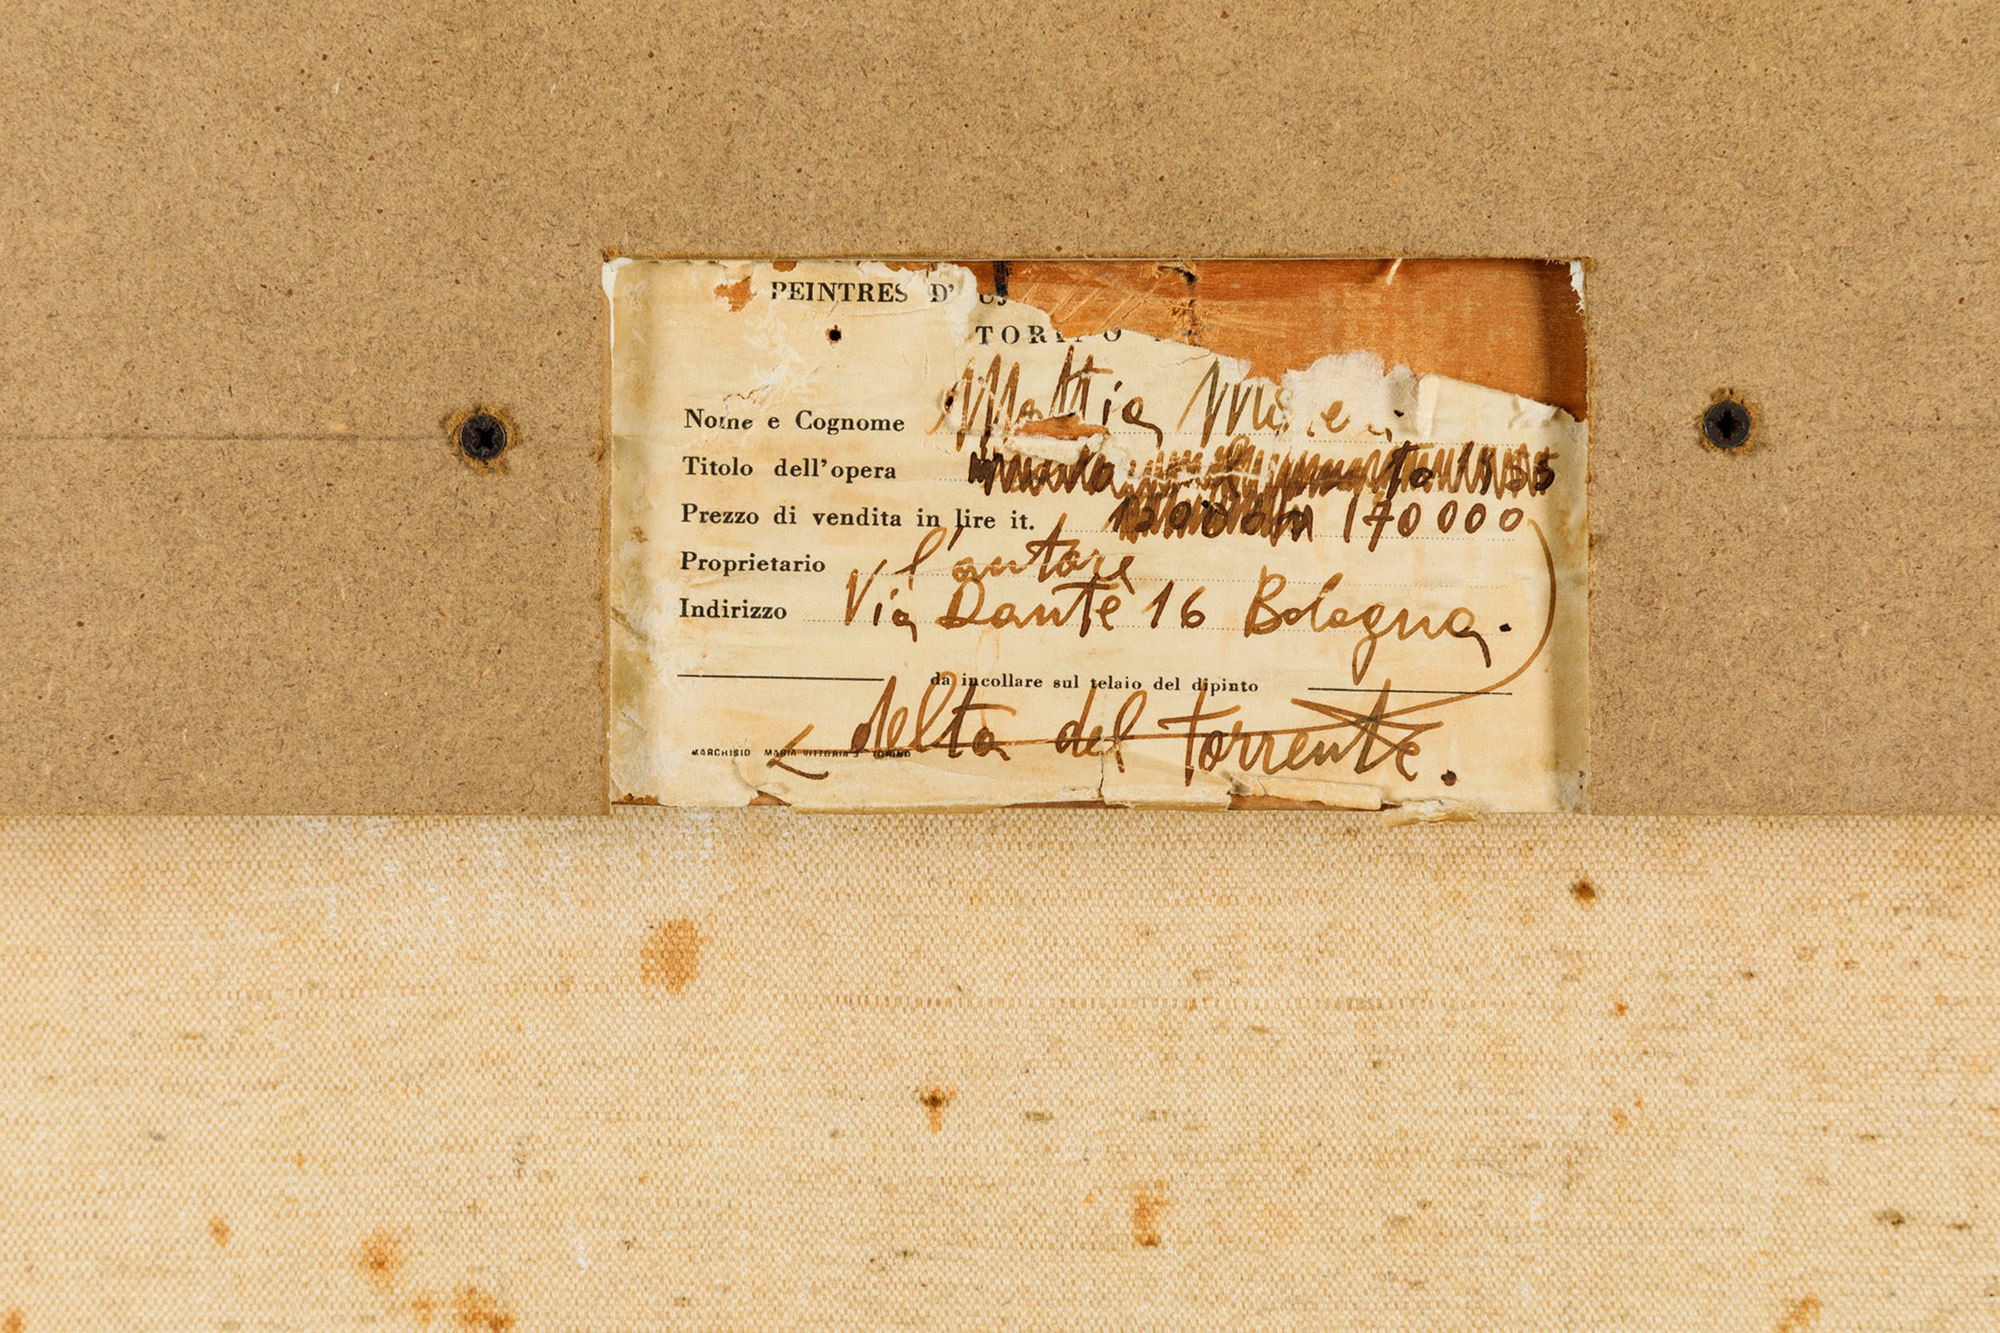 PEINTRES D'
TORINO
Nome e Cognome Mattia
Titolo dell'opera
Prezzo di vendita in lire it. 170000
Proprietario l'autore
Indirizzo Via Dante 16 Bologna.
da incollare sul telaio del dipinto
delta del Torrente.
MARCHISIO MARIA VITTORIA TORINO